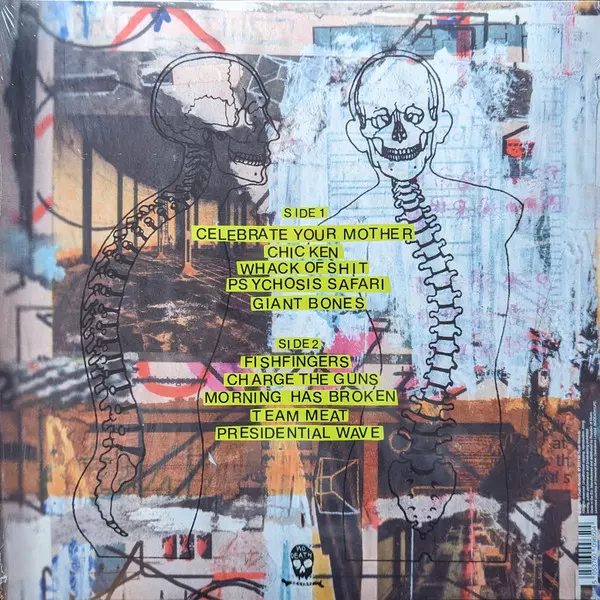 SIDE 1
CELEBRATE YOUR MOTHER
CHICKEN
WHACK OF SHIT
PSYCHOSIS SAFARI
GIANT BONES
SIDE 2
FISHFINGERS
CHARGE THE GUNS
MORNING HAS BROKEN
TEAM MEAT
PRESIDENTIAL WAVE
NO
DEATH